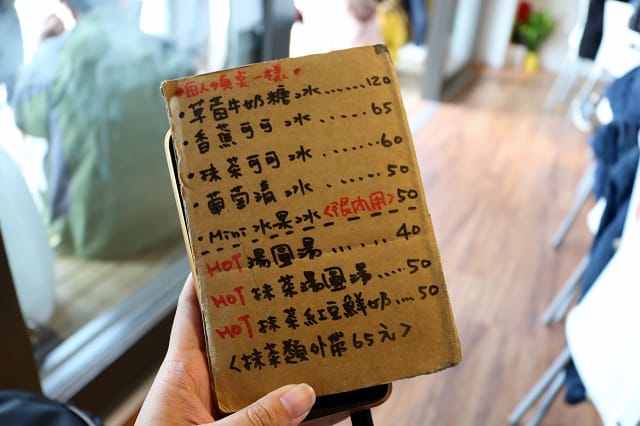 •每人須点一樣•
•草莓牛奶糖冰......120
•香蕉可可冰......65
•抹茶可可冰....60
•葡萄清冰.....50
•Mini水果冰<限內用>50
HOT湯圓湯......40
HOT抹茶湯圓湯.....50
HOT抹茶紅豆鮮奶....50
<抹茶類外帶65元>